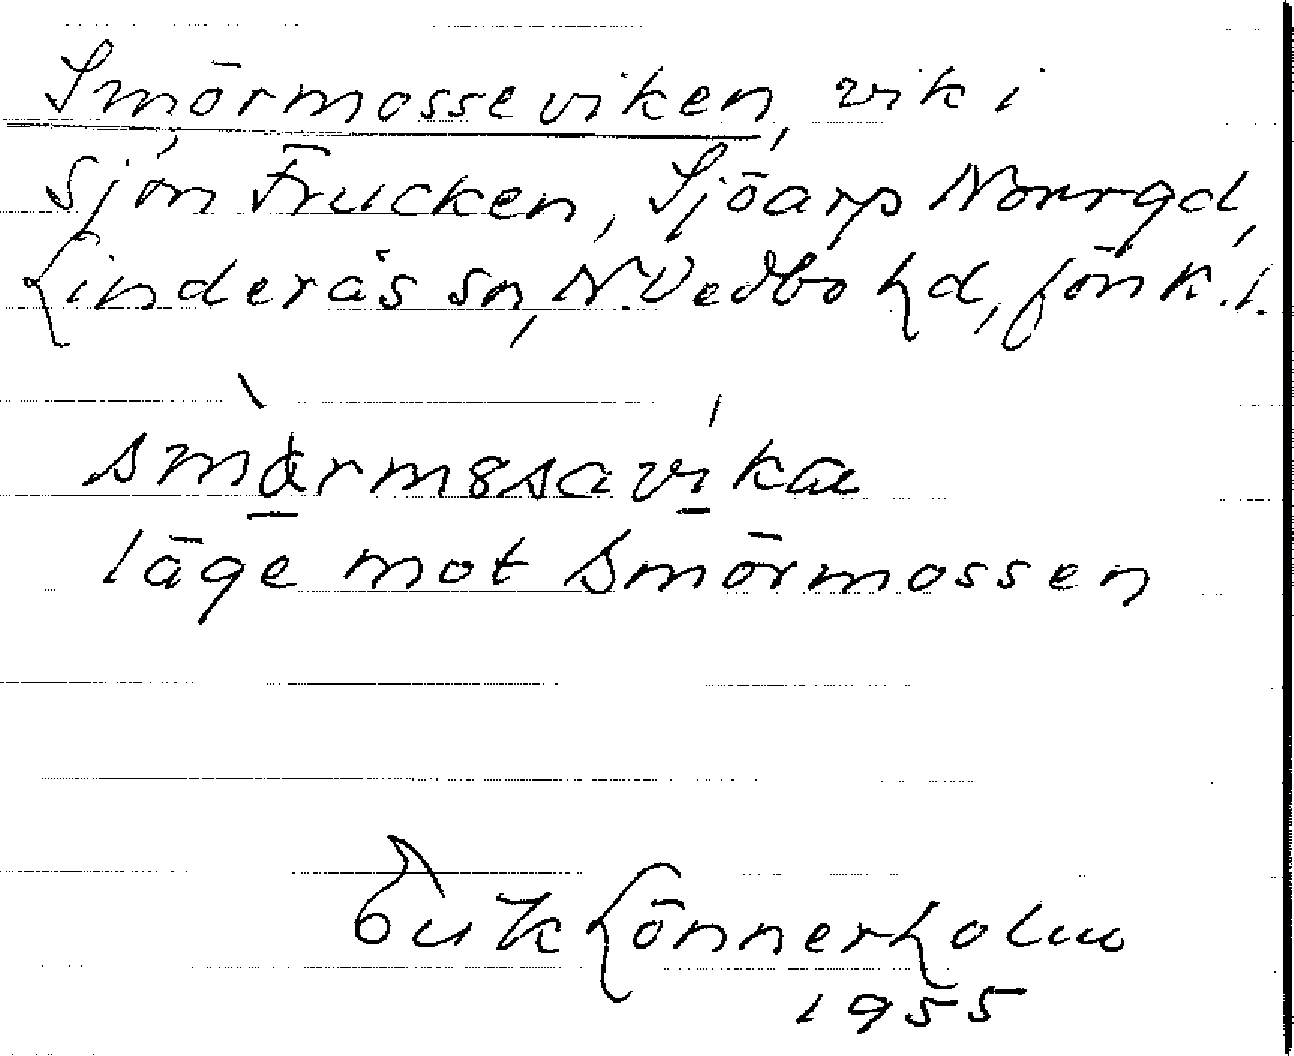 Smörmosseviken, vik i
sjön Frucken, Sjöarp Norrgd,
Linderås sn, N. Vedbo hd, Jönk. l.
läge mot Smörmossen
Erik Lönnerholm
1955